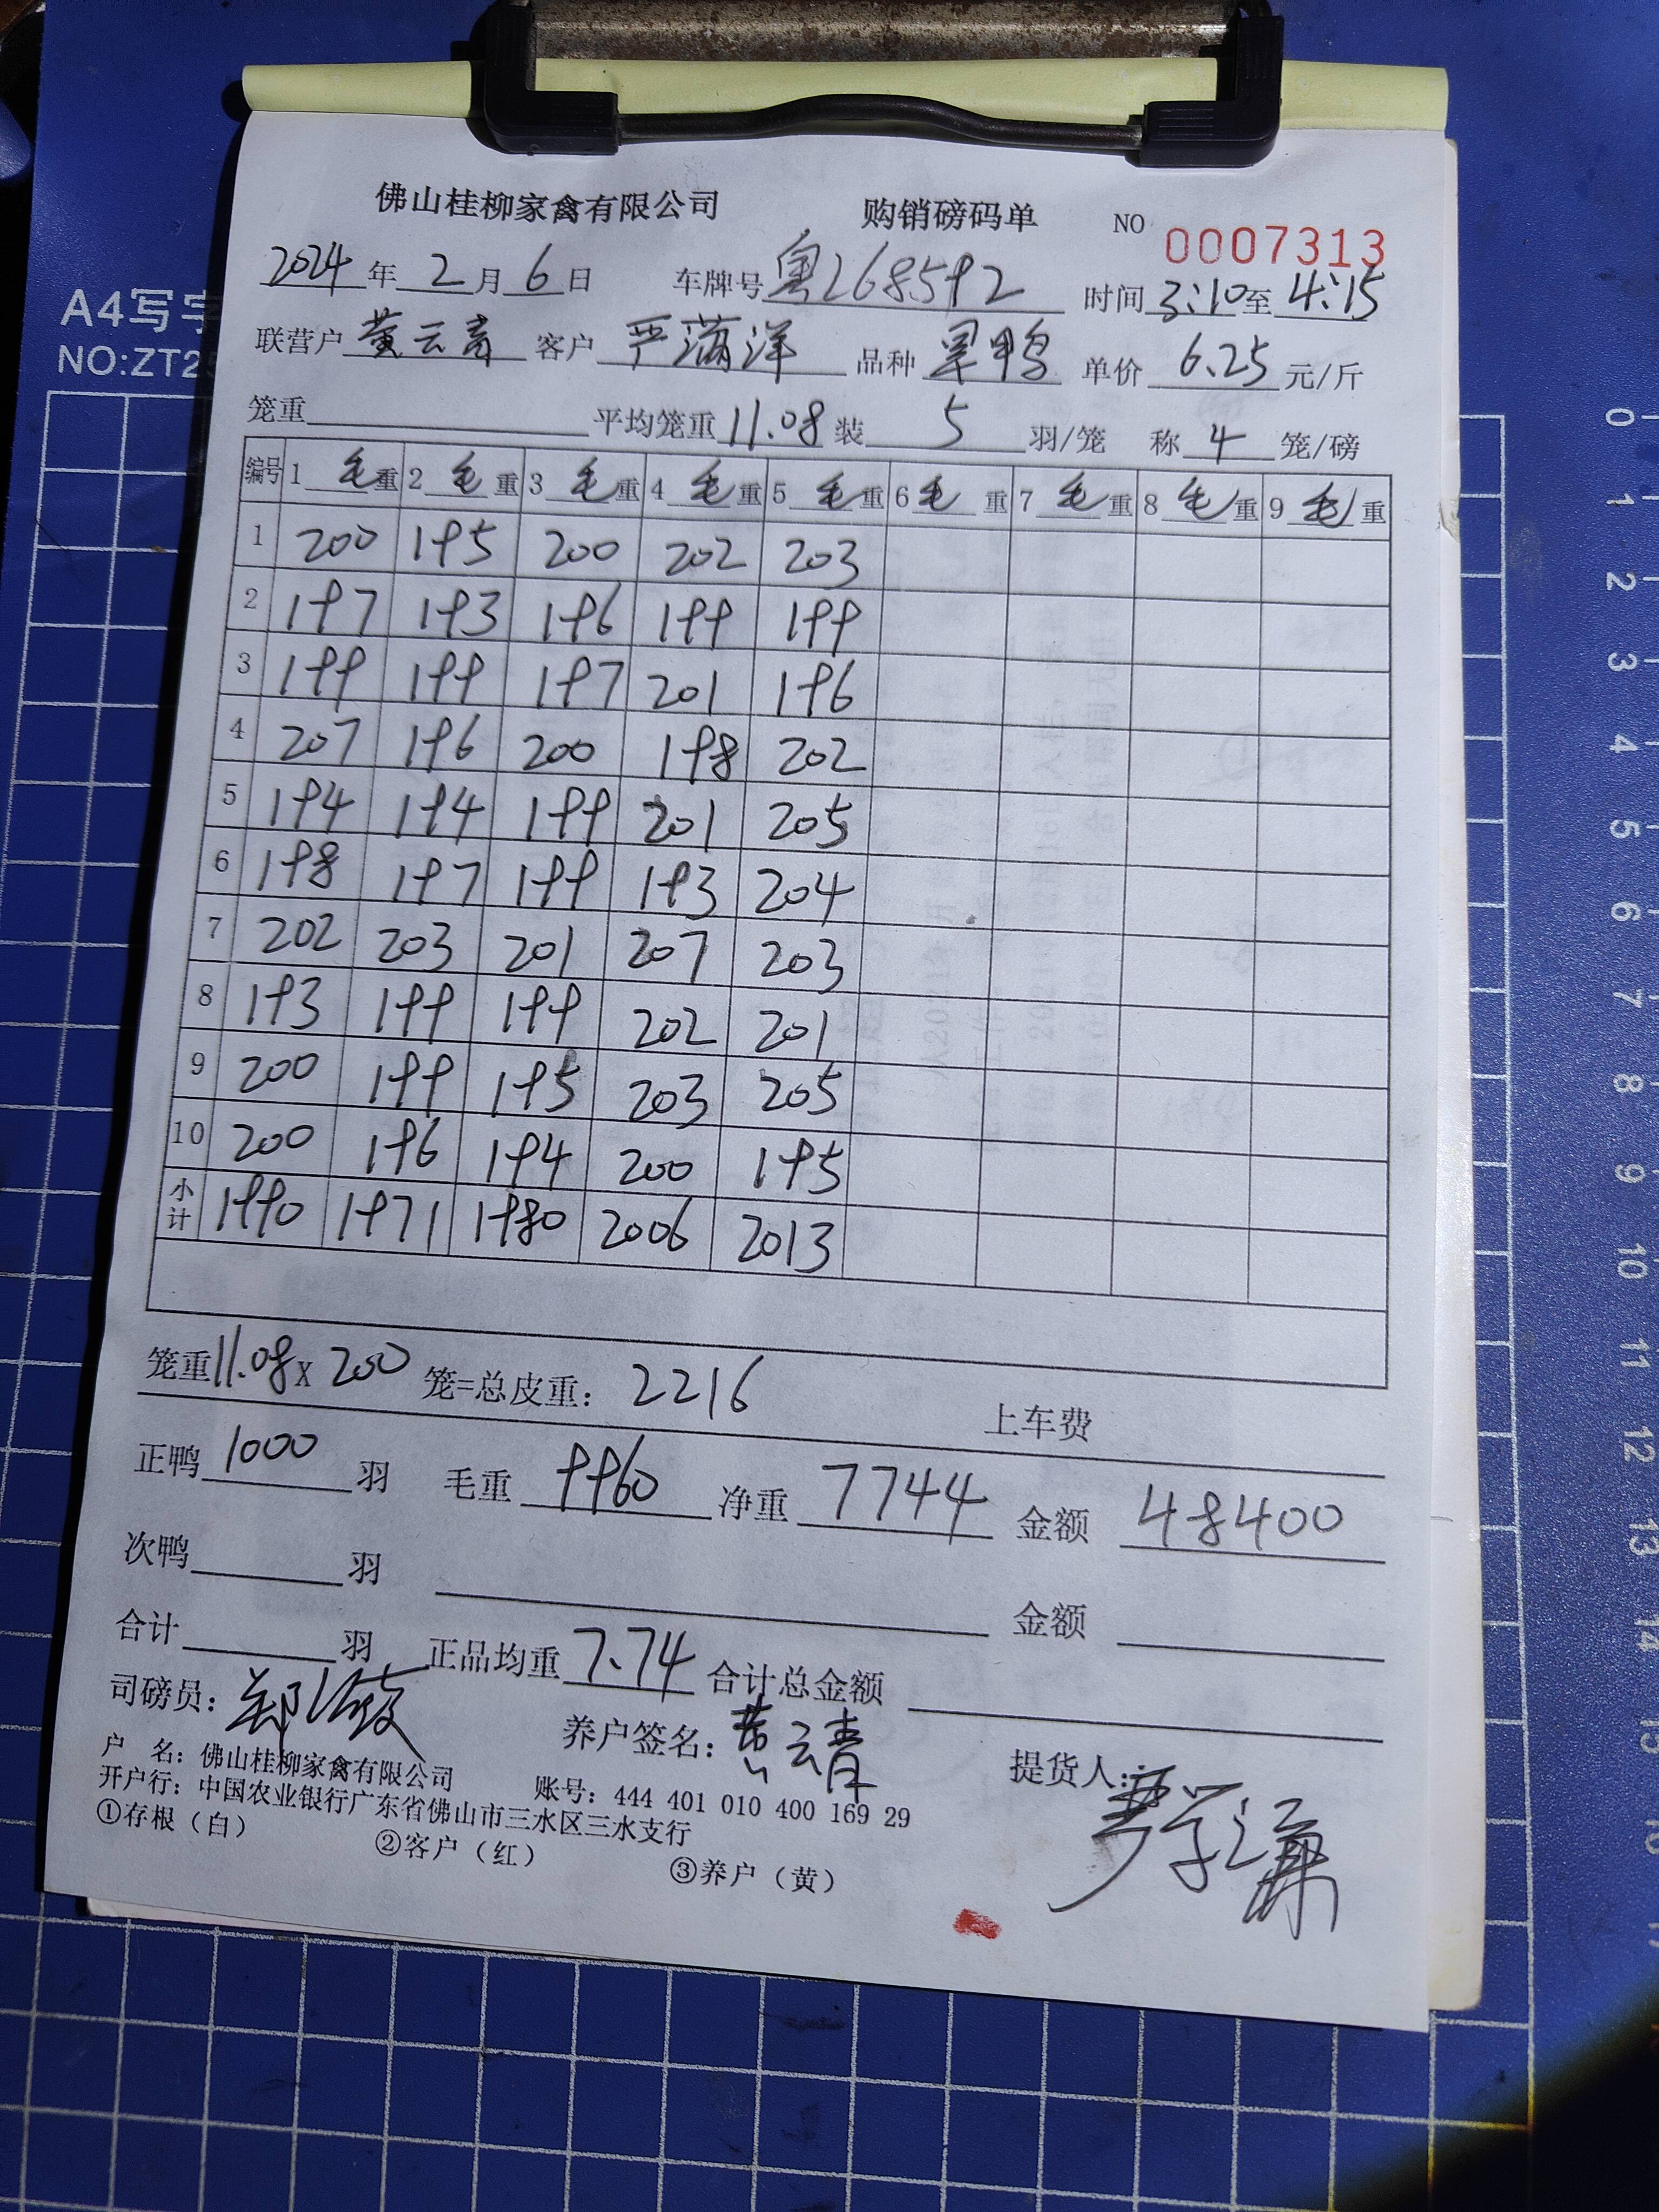 佛山桂柳家禽有限公司 购销磅码单 NO 0007313
2024年2月6日 车牌号 粤 268592 时间 3:10至4:15
A4写字
NO:ZT25
联营户 黄云青 客户 严满洋 品种 单价 6.25 元/斤
笼重 平均笼重 11.08 装 5 羽/笼 称 4 笼/磅
编号 1 毛重 2 毛重 3 毛重 4 毛重 5 毛重 6 毛重 7 毛重 8 毛重 9 毛重
1 200 195 200 202 203
2 197 193 196 199 199
3 199 199 197 201 196
4 207 196 200 198 202
5 194 194 199 201 205
6 198 197 199 193 204
7 202 203 201 207 203
8 193 199 199 202 201
9 200 199 195 203 205
10 200 196 194 200 195
小计 1990 1971 1980 2006 2013
笼重 11.08 X 200 笼=总皮重: 2216 上车费
正鸭 1000 羽 毛重 9960 净重 7744 金额 48400
次鸭 羽 金额
合计 羽 正品均重 7.74 合计总金额
司磅员: 养户签名: 黄云青 提货人:
户 名: 佛山桂柳家禽有限公司 账号: 444 401 010 400 169 29
开户行: 中国农业银行广东省佛山市三水区三水支行
①存根（白） ②客户（红） ③养户（黄）
0
1
2
3
4
5
6
7
8
9
10
11
12
13
14
15
16
17